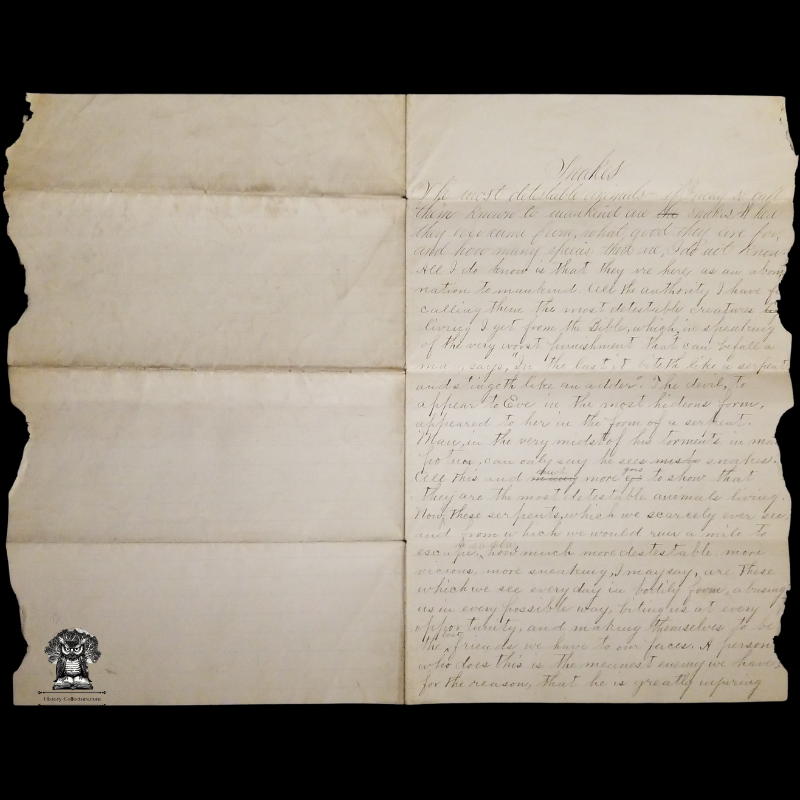 Snakes
The most detestable animals if I may so call
them known to mankind are the snakes. When
they ever came from, what good they are for,
and how many species there are, I do not know.
All I do know is that they are here, as an abom
nation to mankind. All the authority I have f
calling them the most detestable creatures
living I get from the Bible, which, in speaking
of the very worst punishment that can befall a
man, says, "In the last it biteth like a serpent
and stingeth like an adder". The devil, to
appear to Eve in the most hideous form,
appeared to her in the form of a serpent.
Man, in the very midst of his torments in ma
potua, can only say he sees snakes.
All this and much more goes to show that
they are the most detestable animals living.
Now, these serpents, which we scarcely ever see
and from which we would run a mile to
escape, how much more destestable, more
vicious, more sneaking, I may say, are these
which we see everyday in bodily form, abusing
us in every possible way, biting us at every
opportunity, and making themselves to be
the best friends we have to our faces. A person
who does this is the meanest enemy we have,
for the reason, that he is greatly injuring
History-Collectors.com